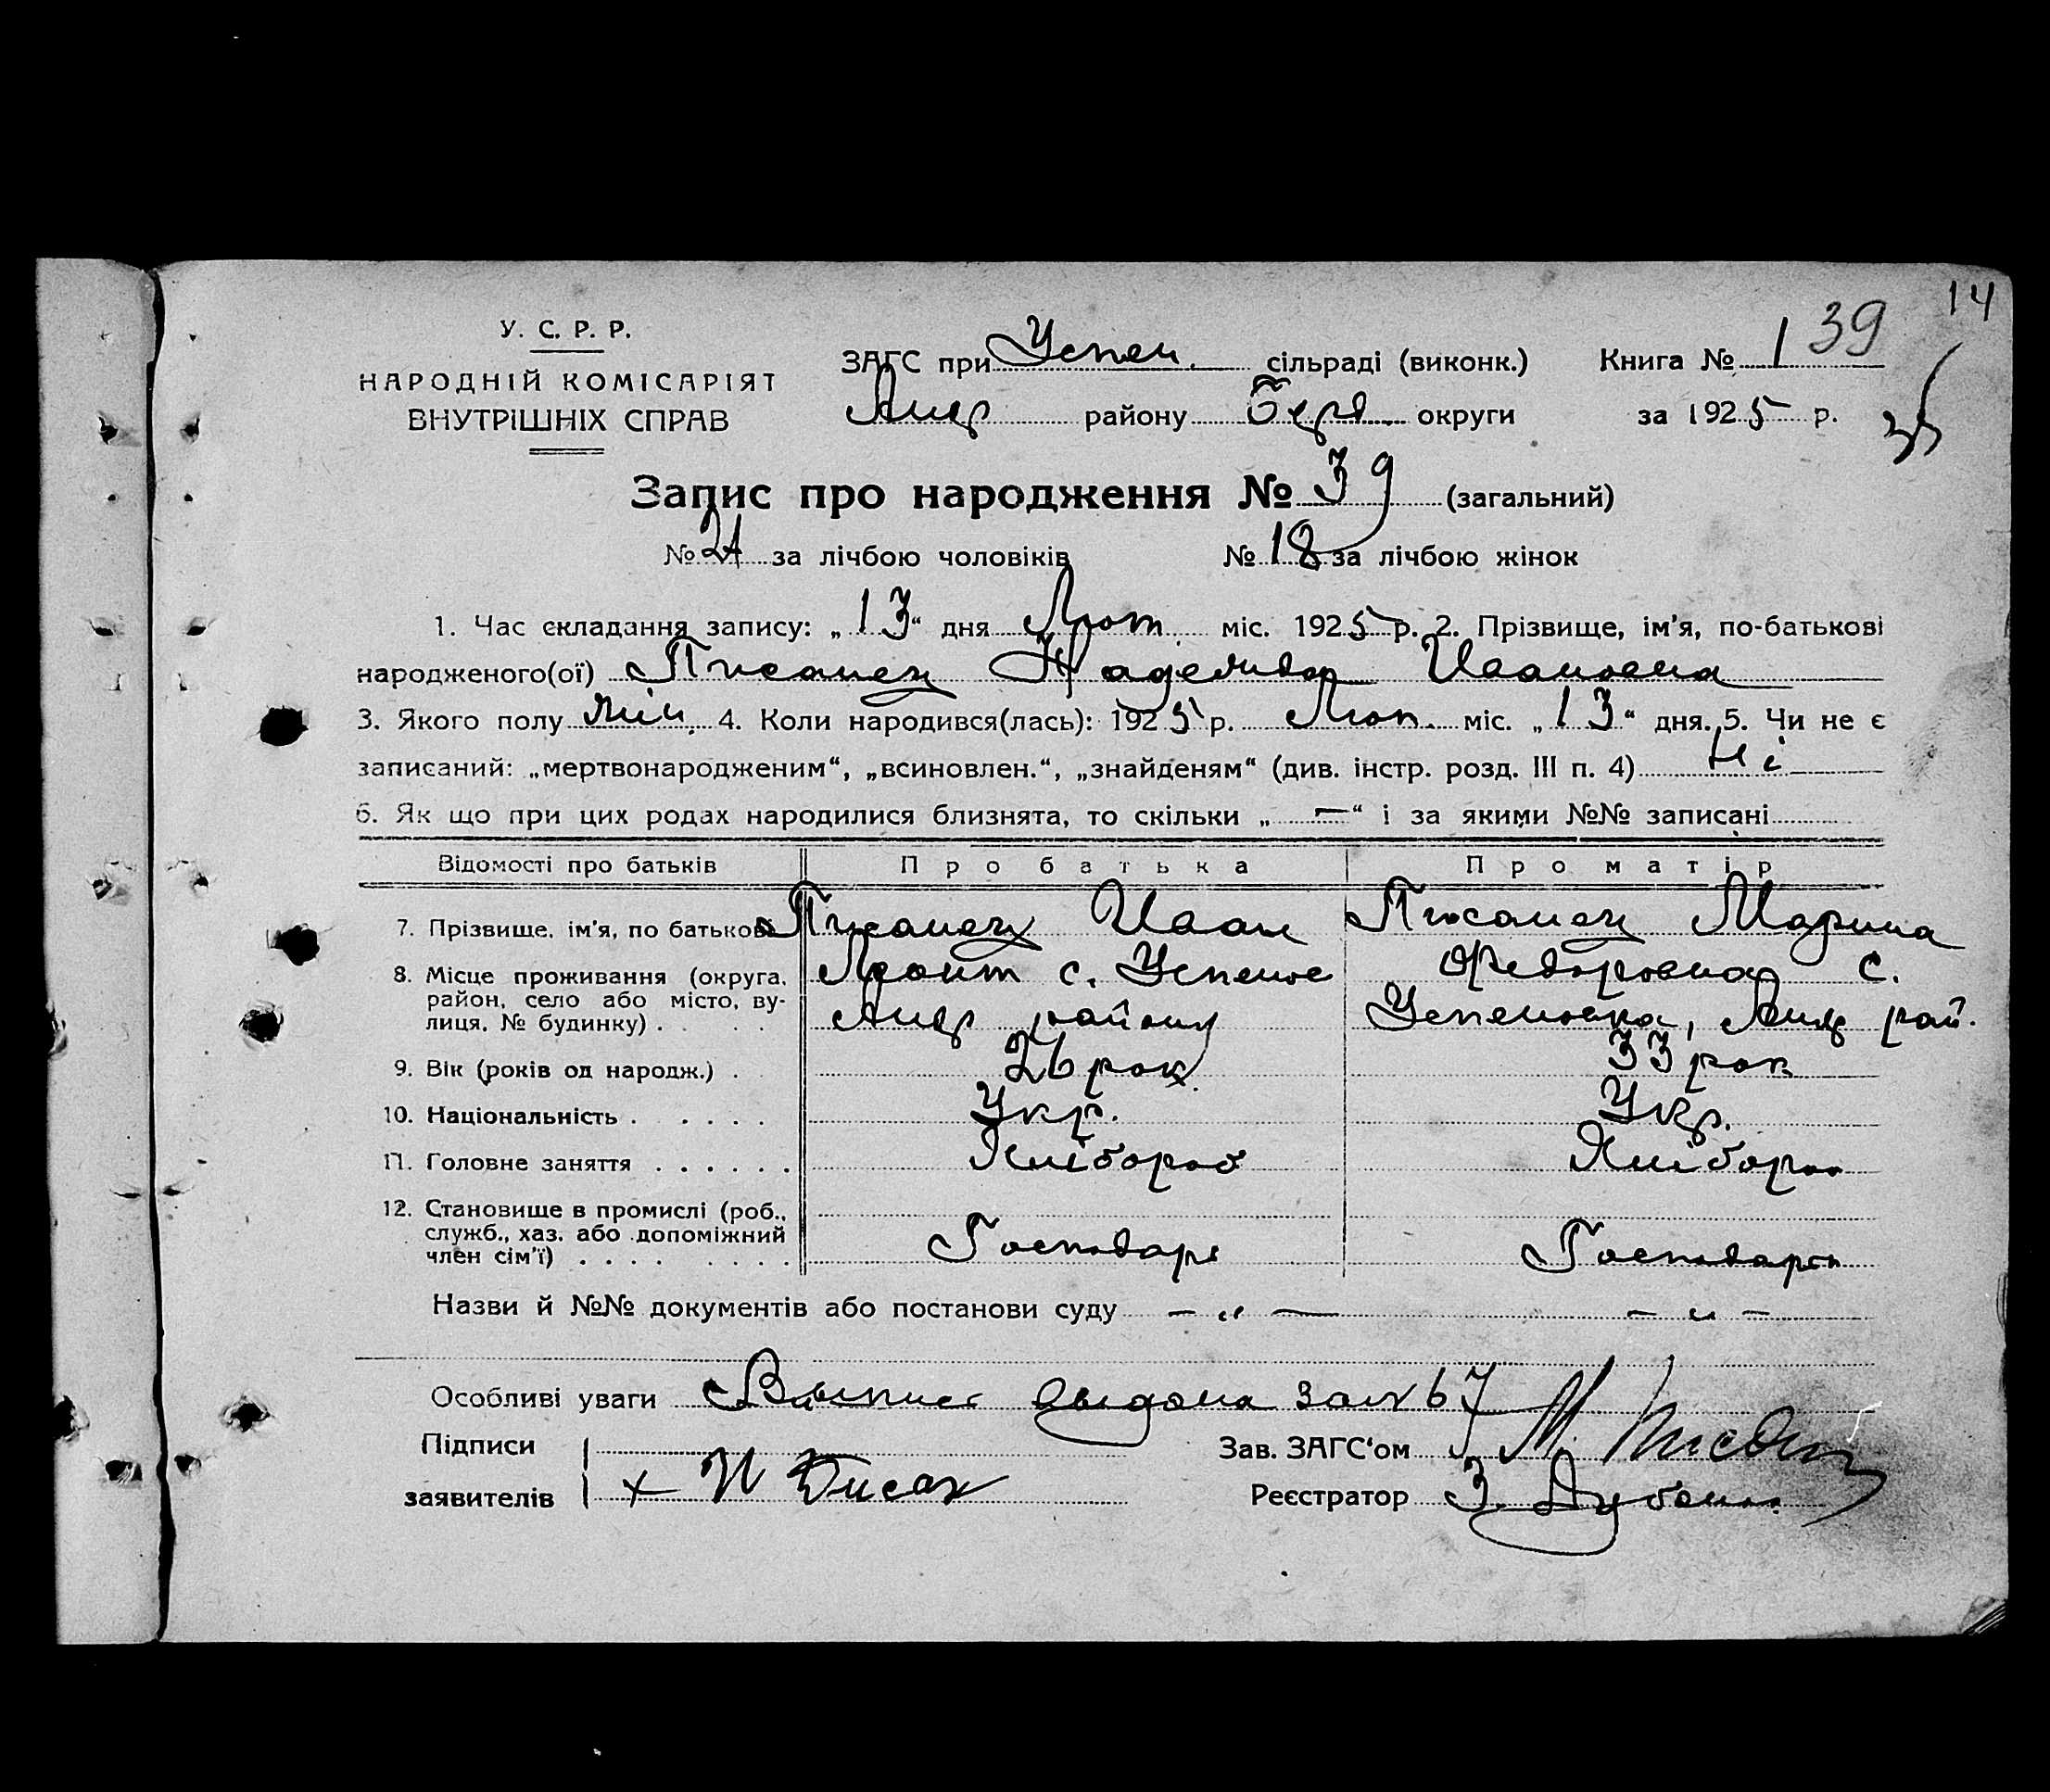 14
У. С. Р. Р.
НАРОДНІЙ КОМІСАРІЯТ
ВНУТРІШНІХ СПРАВ
ЗАГС при Успен. сільраді (виконк.) Книга № 1 39
Андр району Берд. округи за 1925 р.
Запис про народження № 39 (загальний)
№ 21 за лічбою чоловіків № 18 за лічбою жінок
1. Час складання запису: „13“ дня Лют. міс. 1925 р. 2. Прізвище, ім'я, по-батькові
народженого(ої) Писанец Надежда Ивановна
3. Якого полу жін. 4. Коли народився(лась): 1925 р. Лют. міс. „13“ дня. 5. Чи не є
записаний: „мертвонародженим“, „всиновлен.“, „знайденям“ (див. інстр. розд. III п. 4) Ні
6. Як що при цих родах народилися близнята, то скільки „—“ і за якими №№ записані
Відомості про батьків Про батька Про матір
7. Прізвище, ім'я, по батькові Писанец Иван Писанец Марина
8. Місце проживання (округа, с. Успеное Федоровна с.
район, село або місто, ву-
лиця, № будинку) . . . . Андр району Успеновка, Андр рай.
9. Вік (років од народж.) . 26 рок 33 рок
10. Національність . . . . . Укр. Укр.
11. Головне заняття . . . . . . Хлібороб Хлібороб
12. Становище в промислі (роб.,
служб., хаз. або допоміжний Господарь Господарь
член сім'ї) . . . . . . . .
Назви й №№ документів або постанови суду — „ — — „ —
Особливі уваги Выпис выдана за № 67
Підписи Зав. ЗАГС'ом М.
заявителів + И Писан Реєстратор З.